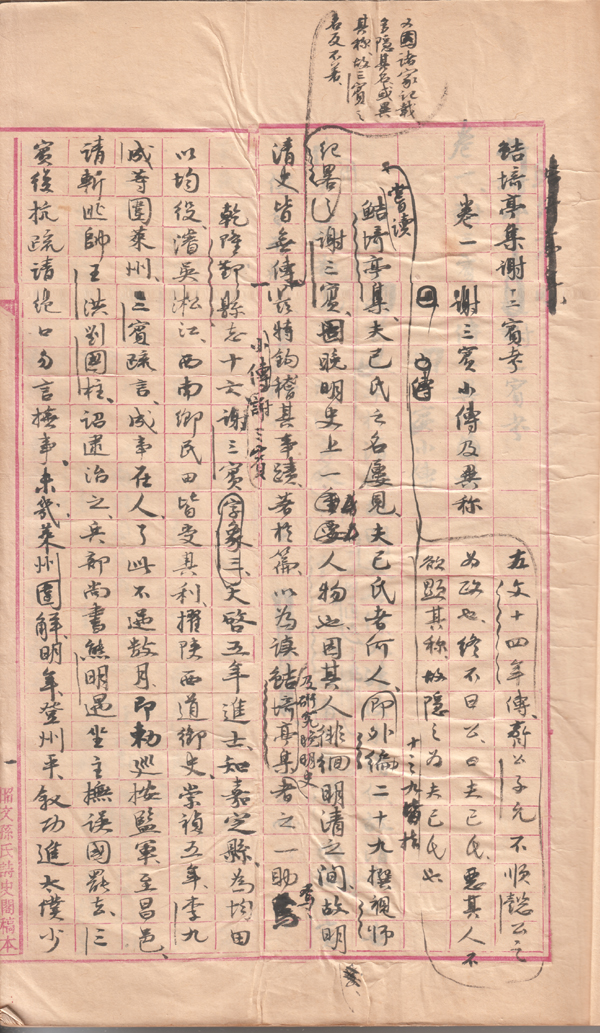 又因諸家記載
多隱其名或異
其稱故三賓之
名反不著
鮚埼亭集謝三賓考
卷一 謝三賓小傳及異稱
左文十四年傳齊公子元不順懿公之
為政也終不曰公曰夫己氏惡其人不
欲顯其稱故隱之為夫己氏也
嘗讀
小傳
鮚埼亭集夫己氏之名屢見夫己氏者何人即外編二十九撰視師
十之九皆指
紀畧之謝三賓因晚明史上一重要人物也因其人徘徊明清之間故明
清史皆無傳爰特鈎稽其事蹟著於篇以為讀鮚埼亭集者之一助焉
及研究晚明史
小傳謝三賓
乾隆鄞縣志十六謝三賓字象三天啓五年進士知嘉定縣為均田
以均役濬吳淞江西南鄉民田皆受其利擢陝西道御史崇禎五年李九
成等圍萊州三賓疏言成事在人了此不過數月即勅巡按監軍至昌邑
請斬逃帥王洪劉國柱詔逮治之兵部尚書熊明遇坐主撫誤國罷去三
賓後抗疏請絕口勿言撫事未幾萊州圍解明年登州平敘功進太僕少
一
昭文孫氏詩史閣稿本